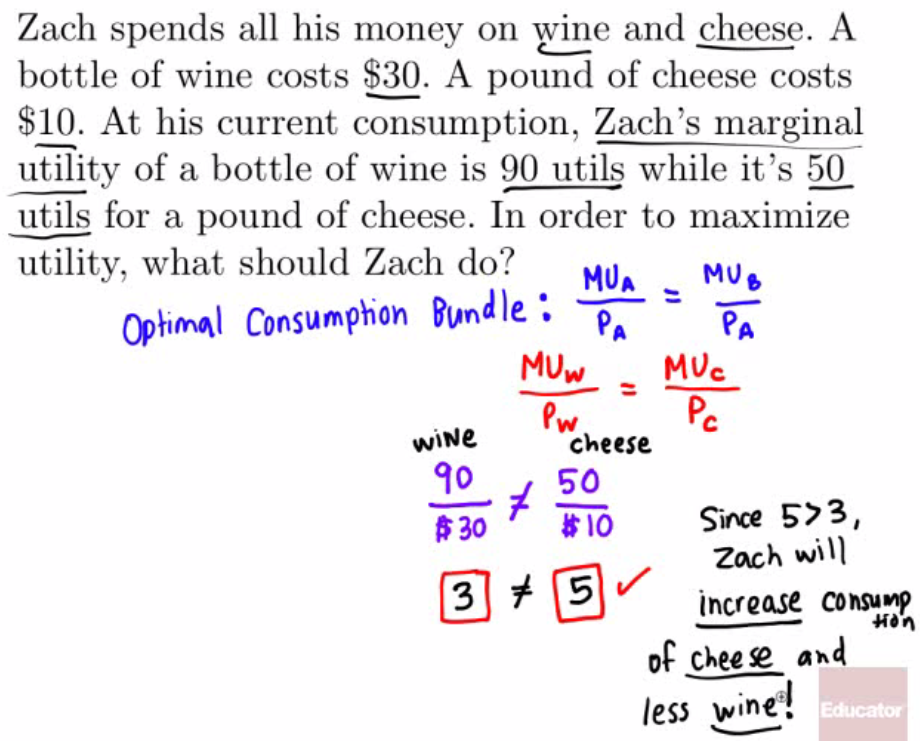 Zach spends all his money on wine and cheese. A
bottle of wine costs $30. A pound of cheese costs
$10. At his current consumption, Zach's marginal
utility of a bottle of wine is 90 utils while it's 50
utils for a pound of cheese. In order to maximize
utility, what should Zach do?
Optimal Consumption Bundle: MUA/PA = MUB/PA
MUW/PW = MUC/PC
wine cheese
90/$30 ≠ 50/$10
3 ≠ 5 ✓
Since 5>3,
Zach will
increase consump
tion
of cheese and
less wine!
Educator